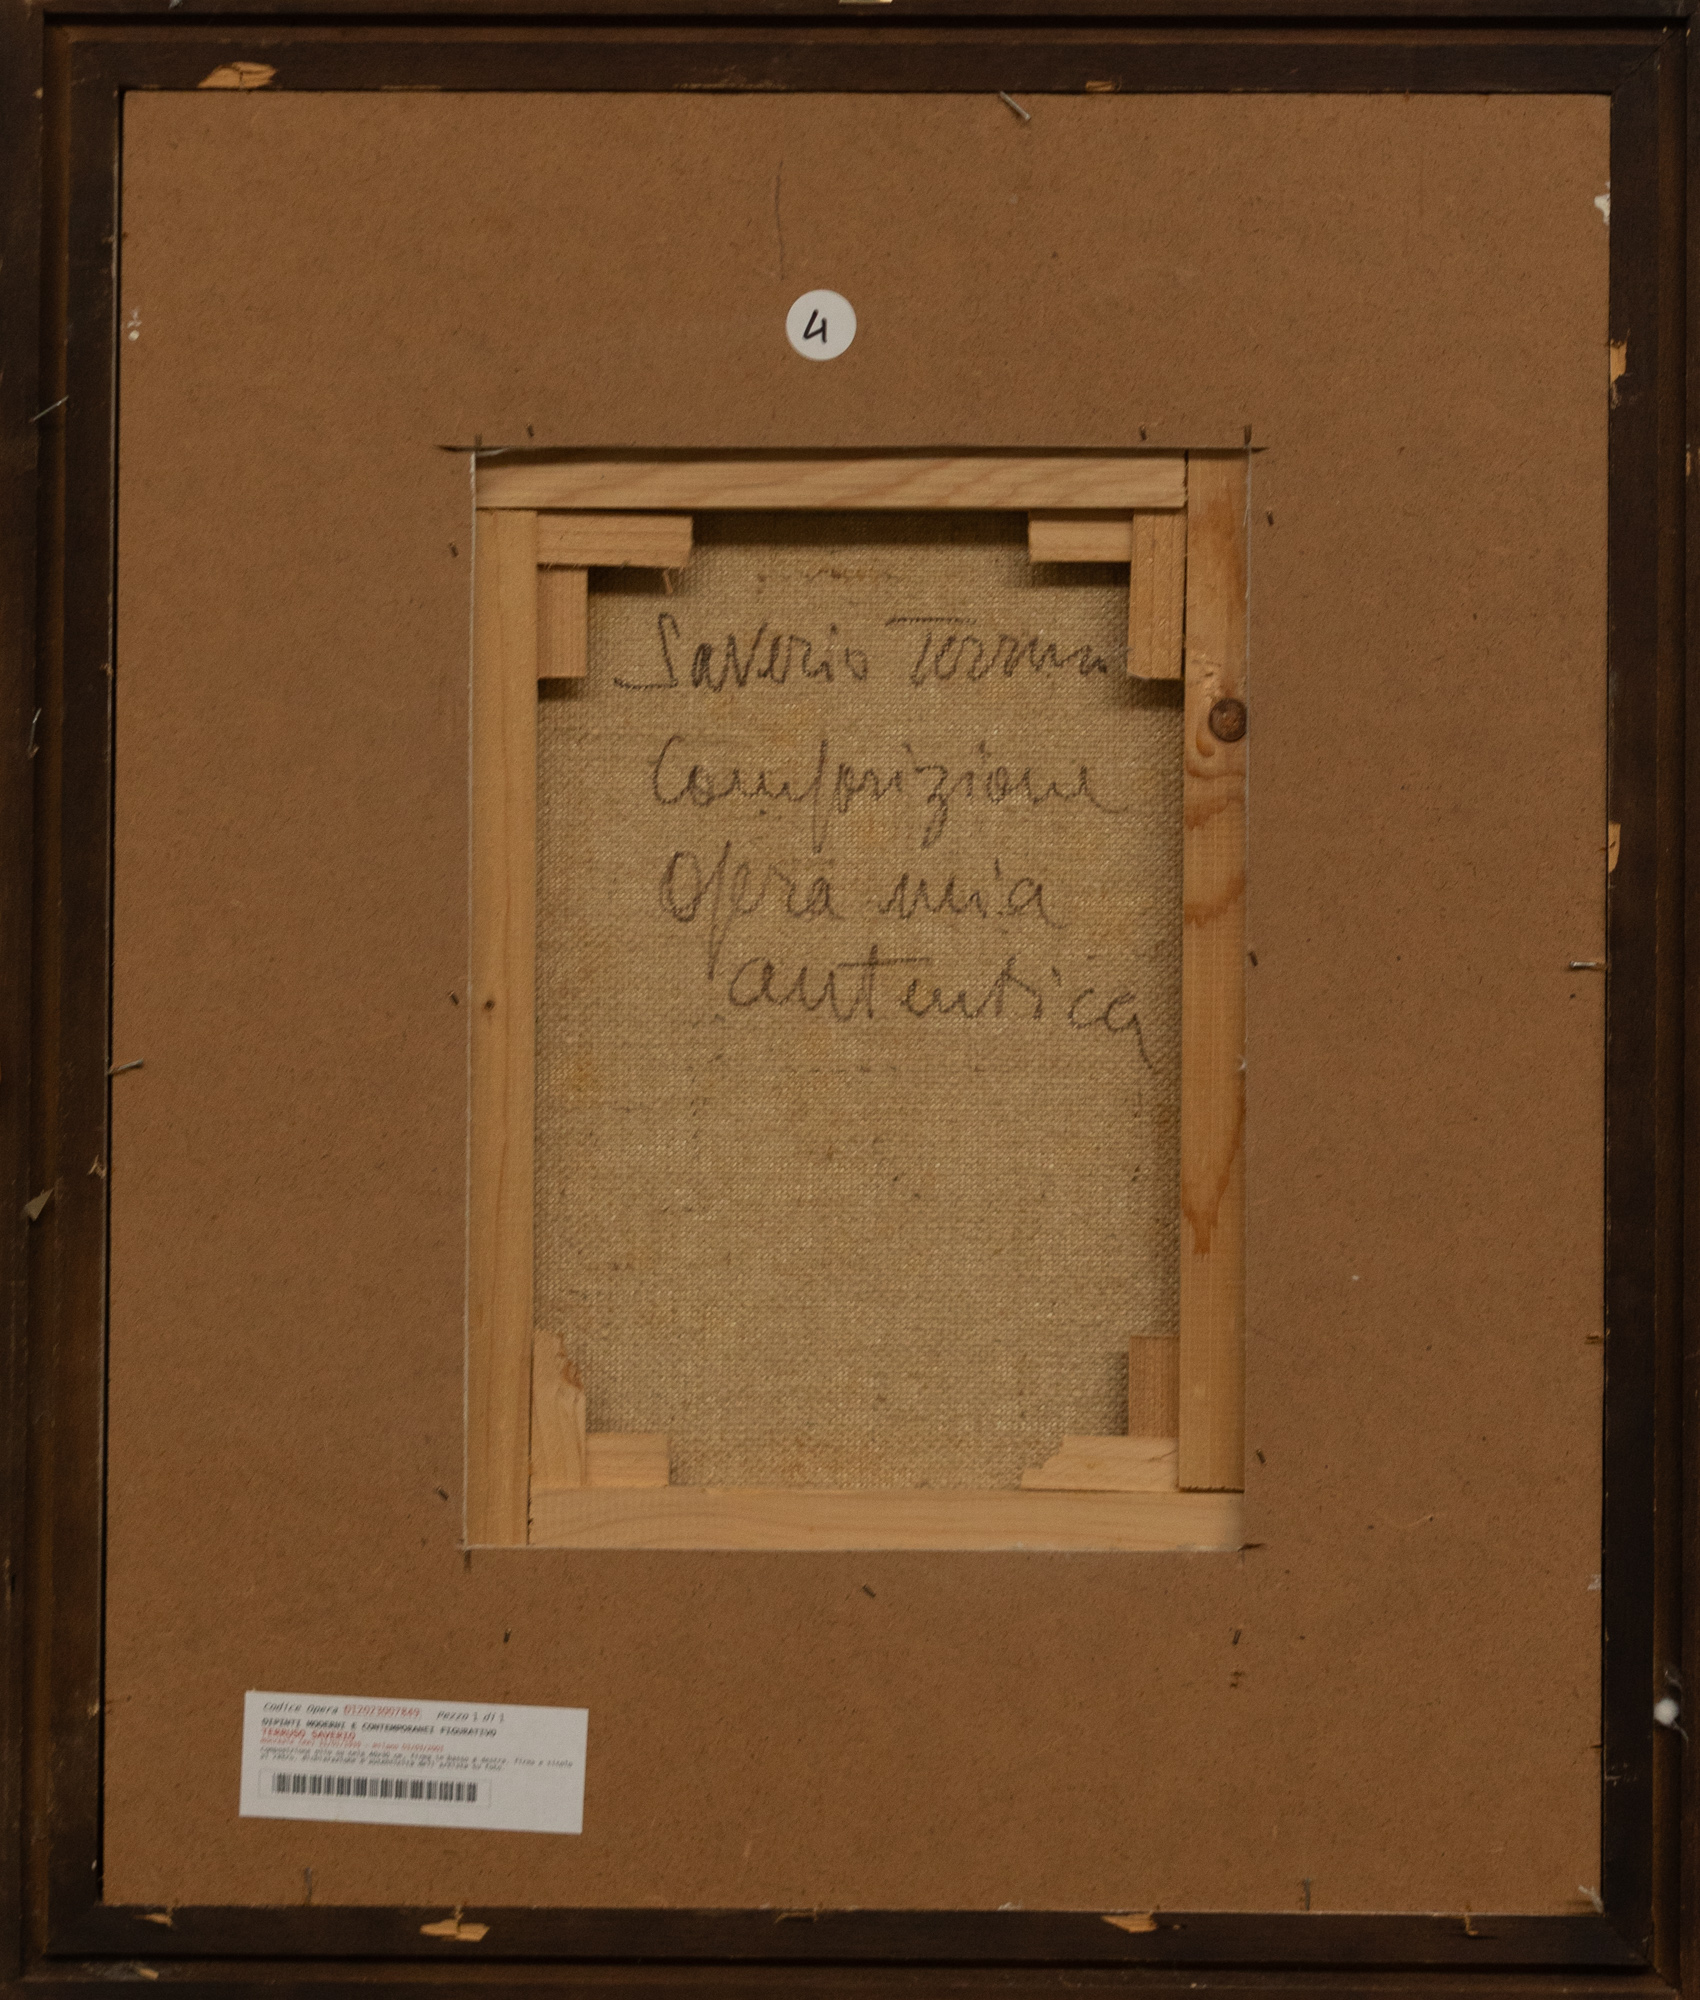 4
Saverio Terruso
Composizione
Opera mia
autentica
Codice Opera 012023007849 Pezzo 1 di 1
DIPINTI MODERNI E CONTEMPORANEI FIGURATIVO
TERRUSO SAVERIO